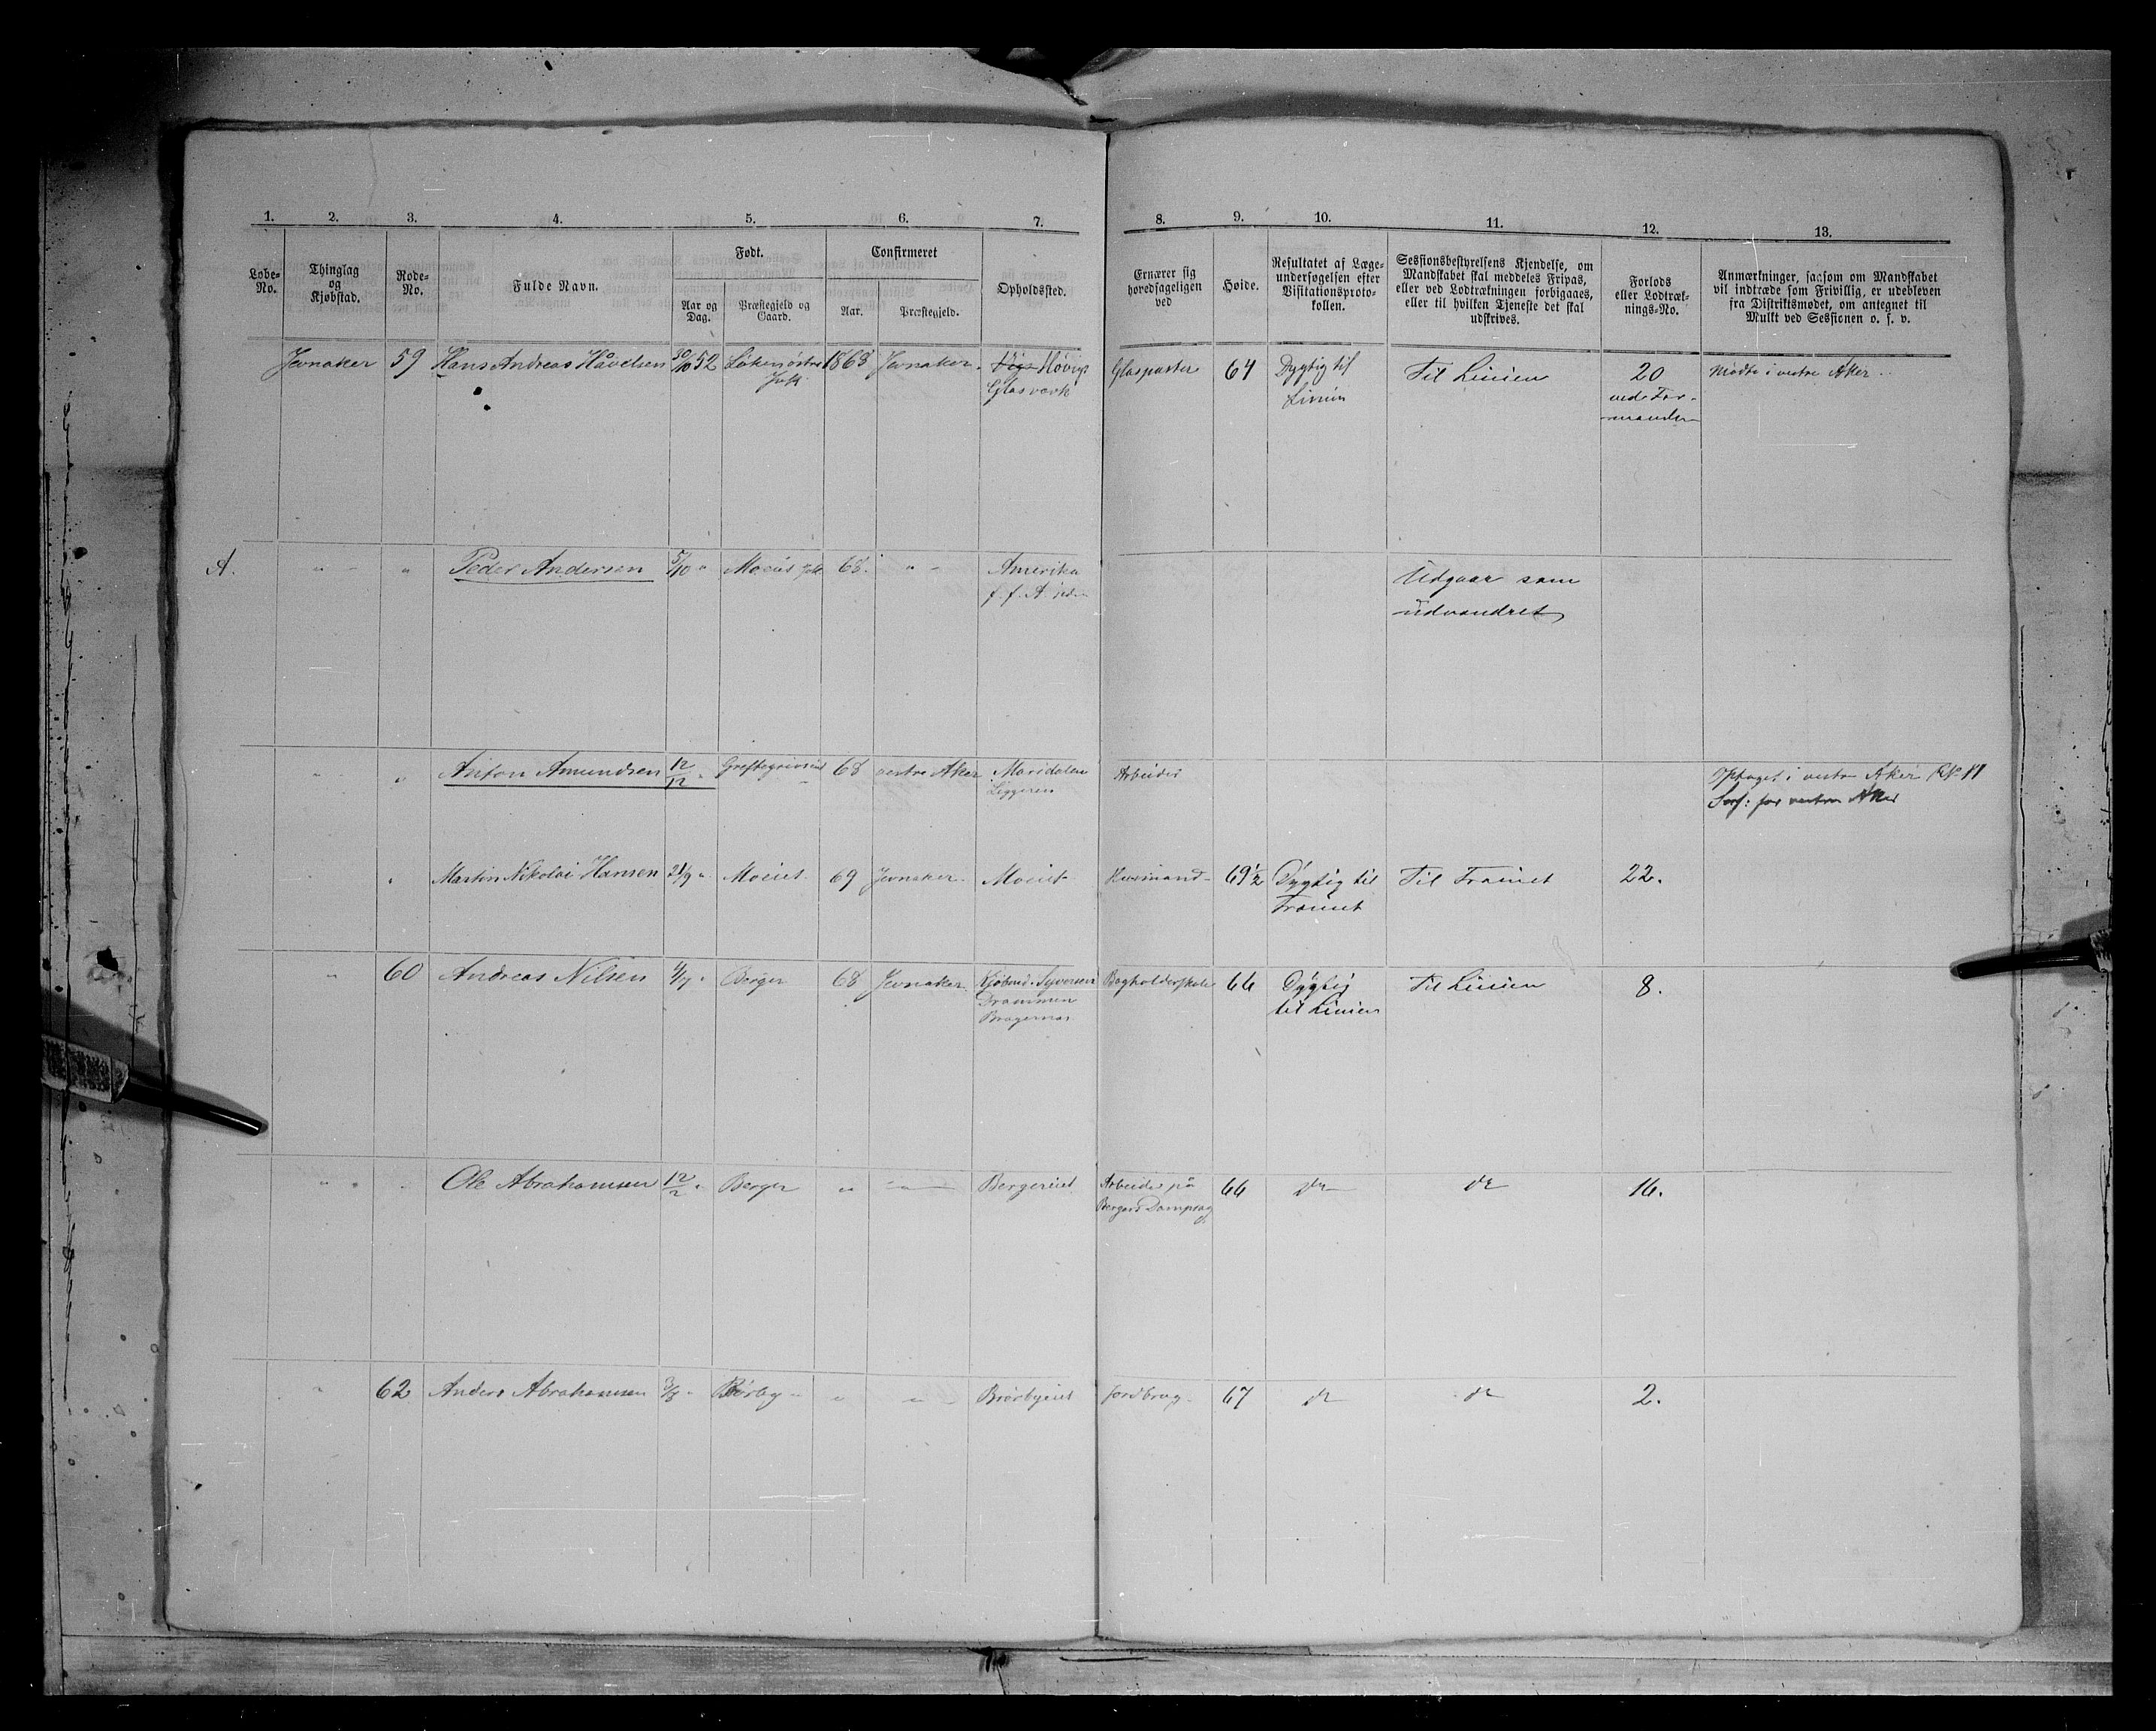 1. 2. 3. 4. 5. 6. 7. 8. 9. 10. 11. 12. 13.
Løbe-No.
Thinglag og Kjøbstad.
Rode-No.
Fulde Navn.
Født.
Aar og Dag.
Præstegjeld og Gaard.
Confirmeret
Aar.
Præstegjeld.
Opholdssted.
Ernærer sig hovedsageligen ved
Høide.
Resultatet af Læge-undersøgelsen efter Visitationsproto-kollen.
Sessionsbestyrelsens Kjendelse, om Mandskabet skal meddeles Fripas, eller ved Lodtrækningen forbigaaes, eller til hvilken Tjeneste det skal udskrives.
Forlods eller Lodtræk-nings-No.
Anmærkninger, saasom om Mandskabet vil indtræde som Frivillig, er udebleven fra Distriktsmødet, om antegnet til Mulkt ved Sessionen o. s. v.
Jevnaker 59 Hans Andreas Håvelsen 30/10 52 Løken østre 1868 Jevnaker Høvigs Glasværk Glaspuster 64 Dygtig til Linien Til Linien 20 Mødte i vestre Aker.
A. " " Peder Andersen 5/10 " Moeiet 68. " Amerika Udgaar som udvandret
" " Anton Amundsen 12/12 " 68 vestre Aker Maridalen Arbeider Optaget i vestre Aker
for vestre Aker
" Martin Nikolai Hansen 21/9 " Moeiet 69 Jevnaker Moeiet Husmand 69½ Dygtig til Trainet Til Trainet 22.
" 60 Andreas Nilsen 4/7 " Berger 68 Jevnaker Kjøbmd. Syversen Drammen Bragernæs Bogholderskole 66 Dygtig til Linien Til Linien 8.
" " Ole Abrahamsen 12/2 " Berger " " Bergereiet Arbeider på Bergers Dampsag 66 do do 16.
" 62 Anders Abrahamsen 3/8 " " " Brørbyeiet Jordbrug 67 do do 2.